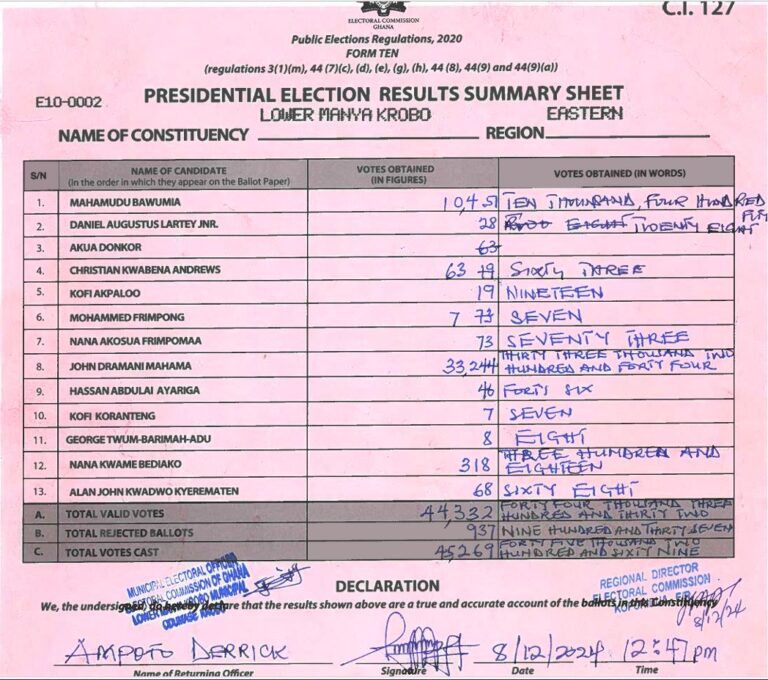 C.I. 127
ELECTORAL COMMISSION
GHANA
Public Elections Regulations, 2020
FORM TEN
(regulations 3(1)(m), 44 (7)(c), (d), (e), (g), (h), 44 (8), 44(9) and 44(9)(a))
E10-0002
PRESIDENTIAL ELECTION RESULTS SUMMARY SHEET
NAME OF CONSTITUENCY LOWER MANYA KROBO REGION EASTERN
S/N NAME OF CANDIDATE (in the order in which they appear on the Ballot Paper) VOTES OBTAINED (IN FIGURES) VOTES OBTAINED (IN WORDS)
1. MAHAMUDU BAWUMIA 10,451 TEN THOUSAND, FOUR HUNDRED
2. DANIEL AUGUSTUS LARTEY JNR. 28 EIGHT TWENTY EIGHT
3. AKUA DONKOR 63
4. CHRISTIAN KWABENA ANDREWS 63 19 SIXTY THREE
5. KOFI AKPALOO 19 NINETEEN
6. MOHAMMED FRIMPONG 7 73 SEVEN
7. NANA AKOSUA FRIMPOMAA 73 SEVENTY THREE
8. JOHN DRAMANI MAHAMA 33,244 THIRTY THREE THOUSAND TWO HUNDRED AND FORTY FOUR
9. HASSAN ABDULAI AYARIGA 46 FORTY SIX
10. KOFI KORANTENG 7 SEVEN
11. GEORGE TWUM-BARIMAH-ADU 8 EIGHT
12. NANA KWAME BEDIAKO 318 THREE HUNDRED AND EIGHTEEN
13. ALAN JOHN KWADWO KYEREMATEN 68 SIXTY EIGHT
A. TOTAL VALID VOTES 44,332 FORTY FOUR THOUSAND THREE HUNDRED AND THIRTY TWO
B. TOTAL REJECTED BALLOTS 937 NINE HUNDRED AND THIRTY SEVEN
C. TOTAL VOTES CAST 45,269 FORTY FIVE THOUSAND TWO HUNDRED AND SIXTY NINE
MUNICIPAL ELECTORAL OFFICER
ELECTORAL COMMISSION OF GHANA
LOWER MANYA KROBO MUNICIPAL
ODUMASE KROBO
DECLARATION
REGIONAL DIRECTOR
ELECTORAL COMMISSION
We, the undersigned, do hereby declare that the results shown above are a true and accurate account of the ballots in this Constituency
8/12/24
AMPOTO DERRICK 8/12/2024 12:47pm
Name of Returning Officer Signature Date Time